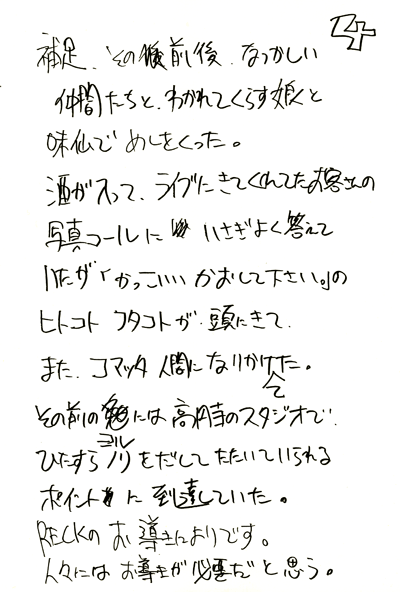 補足、その前後、なつかしい
仲間たちと、わかれてくらす娘くと
味仙でめしをくった。
酒が入って、ライブにきてくれてたお客さんの
写真コールに いさぎよく答えて
いたが「かっこいいかおして下さい。」の
ヒトコト フタコトが、頭にきて、
また、コマッタ人間になりかけてた。
その前の晩には高円寺のスタジオで、
ひたすらノリをだしてたたいていられる
ヨル
ポイントに到達していた。
RECKのお導きによりです。
人々にはお導きが必要だと思う。